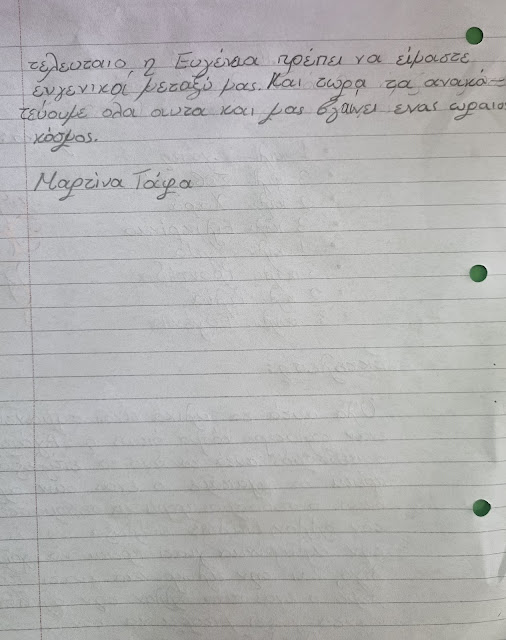 τελευταιο η Ευγένεια πρέπει να είμαστε
ευγενικοί μεταξύ μας. Και τωρα τα ανακα-
τεύουμε ολα αυτα και μας βγαινει ενας ωραιος
κόσμος.
Μαρτίνα Τσάφα